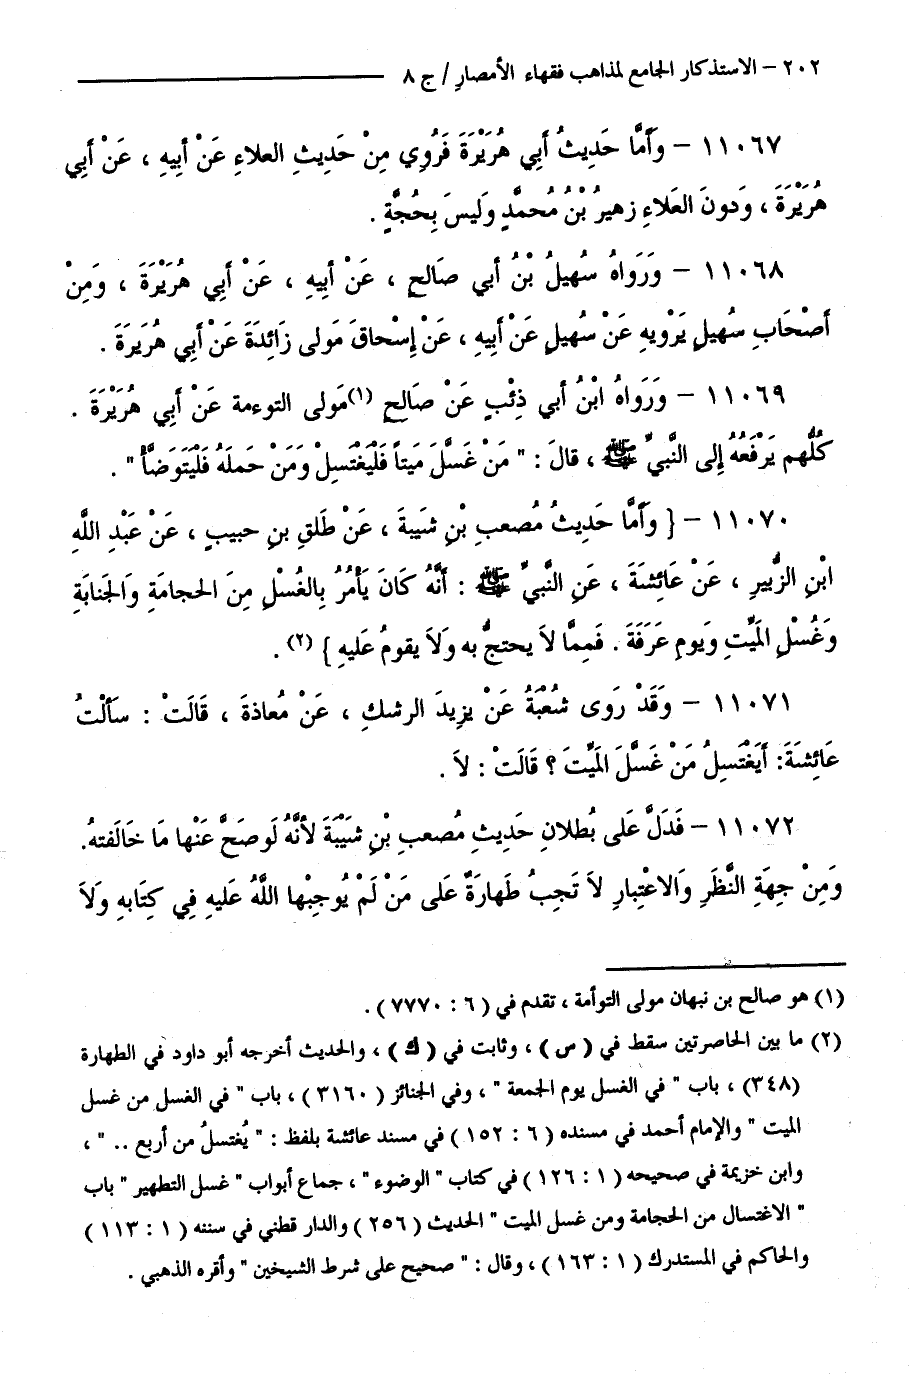 ٢٠٢ – الاستذكار الجامع لمذاهب فقهاء الأمصارِ / ج ٨
١١٠٦٧ – وأَمَّا حَدِيثُ أَبِي هُرَيْرَةَ فَرُوِي مِنْ حَدِيثِ العلاءِ عَنْ أَبِيهِ ، عَنْ أَبِي
هُرَيْرَةَ ، وَدونَ العَلاءِ زهيرُ بْنُ مُحمدَّ وَليسَ بِحُجَّةٍ .
١١٠٦٨ – وَرَواهُ سُهيلُ بْنُ أبي صَالحٍ ، عَنْ أبِيهِ ، عَنْ أَبِي هُرَيْرَةَ ، وَمِنْ
أصْحَابِ سُهيلٍ يَرْويهِ عَنْ سُهيلٍ عَنْ أَبِيهِ ، عَنْ إِسْحاقَ مَولى زَائِدَةَ عَنْ أبي هُرَيَرَةَ .
١١٠٦٩ – وَرَواهُ ابْنُ أبي ذِئْبٍ عَنْ صَالحٍ (١)مَولى التوءمة عَنْ أبي هُرَيْرَةَ .
كُلُّهم يَرْفَعُهُ إِلى النَّبيِّ ﷺ ، قالَ : " مَنْ غَسَّلَ مَيتاً فَلْيَغْتَسِلْ وَمَنْ حَملَهُ فَلْيَتَوَضَّأُ " .
١١٠٧٠ – { وأَمَّا حَدِيثُ مُصعبِ بْنِ شَيَبةَ ، عَنْ طَلقِ بنِ حبيبٍ ، عَنْ عَبْدِ اللَّهِ
ابْنِ الزُّبيرِ ، عَنْ عَائِشَةَ ، عَنِ النَّبيِّ ﷺ : أَنَّهُ كَانَ يَأْمُرُ بِالغُسْلِ مِنَ الحجامَةِ وَالجَنابَةِ
وَغُسْلِ المَيِّتِ وَيومِ عَرَفَةَ . فَمِمَّا لاَ يحتجُّ به وَلاَ يقومُ عَليهِ } (٢) .
١١٠٧١ – وَقَدْ رَوَى شُعْبَةُ عَنْ يزِيدَ الرشكِ ، عَنْ مُعاذةَ ، قَالَتْ : سألْتُ
عَائِشَةَ: أَيَغْتَسِلُ مَنْ غَسَّلَ المَيِّتَ ؟ قَالَتْ : لاَ .
١١٠٧٢ – فَدَلَّ عَلى بُطلانِ حَديثِ مُصعبِ بْنِ شَيْبَةَ لأَنَّهُ لَو صَحَّ عَنْها مَا خَالَفتهُ.
وَمِنْ جِهَةِ النَّظَرِ وَالاعْتِبارِ لاَ تَجبُ طَهارَةٌ عَلى مَنْ لَمْ يُوجِبْها اللَّهُ عَليهِ فِي كِتَابهِ وَلاَ
(١) هو صالح بن نبهان مولى التوأمة ، تقدم في ( ٦ : ٧٧٧٠ ) .
(٢) ما بين الحاصرتين سقط في ( س ) ، وثابت في ( ك ) ، والحديث أخرجه أبو داود في الطهارة
(٣٤٨) ، باب " في الغسل يوم الجمعة " ، وفي الجنائز ( ٣١٦٠ ) ، باب " في الغسل من غسل
الميت " والإمام أحمد في مسنده ( ٦ : ١٥٢ ) في مسند عائشة بلفظ : " يُغتسلُ من أربع .. " ،
وابن خزيمة في صحيحه ( ١ : ١٢٦ ) في كتاب " الوضوء " ، جماع أبواب " غسل التطهير " باب
" الاغتسال من الحجامة ومن غسل الميت " الحديث ( ٢٥٦ ) والدار قطني في سننه ( ١ : ١١٣ )
والحاكم في المستدرك ( ١ : ١٦٣ ) ، وقال : " صحيح على شرط الشيخين " وأقره الذهبي .